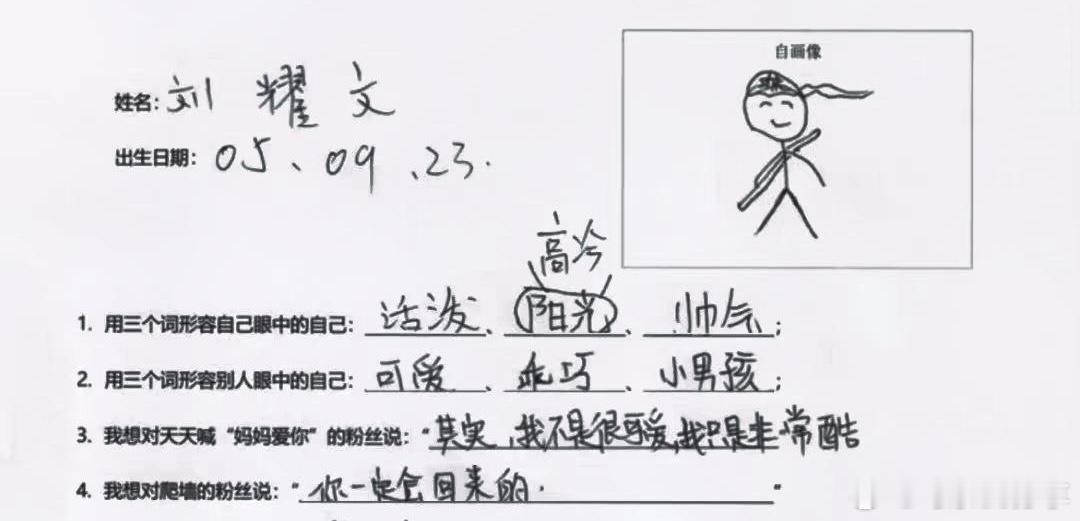 自画像
姓名: 刘 耀 文
出生日期: 05、09、23.
高冷
1. 用三个词形容自己眼中的自己: 活泼、阳光、帅气;
2. 用三个词形容别人眼中的自己: 可爱、乖巧、小男孩;
3. 我想对天天喊“妈妈爱你”的粉丝说:“其实,我不是很可爱,我只是非常酷
4. 我想对爬墙的粉丝说:“你一定会回来的.”